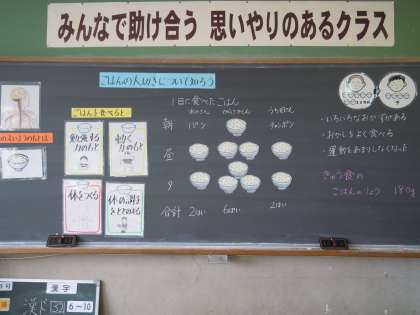 みんなで助け合う 思いやりのあるクラス
ごはんの大切さについて知ろう
ごはんを食べると
勉強する力のもと
動く力のもと
体をつくる
体の調子をととのえる
1日に食べたごはん
朝
パン
昼
夕
合計 2はい 6ぱい 2はい
・いろいろなおかずがある
・おかしをよく食べる
・運動をあまりしなくなった
きゅう食の
ごはんのりょう 180g
漢字
6~10